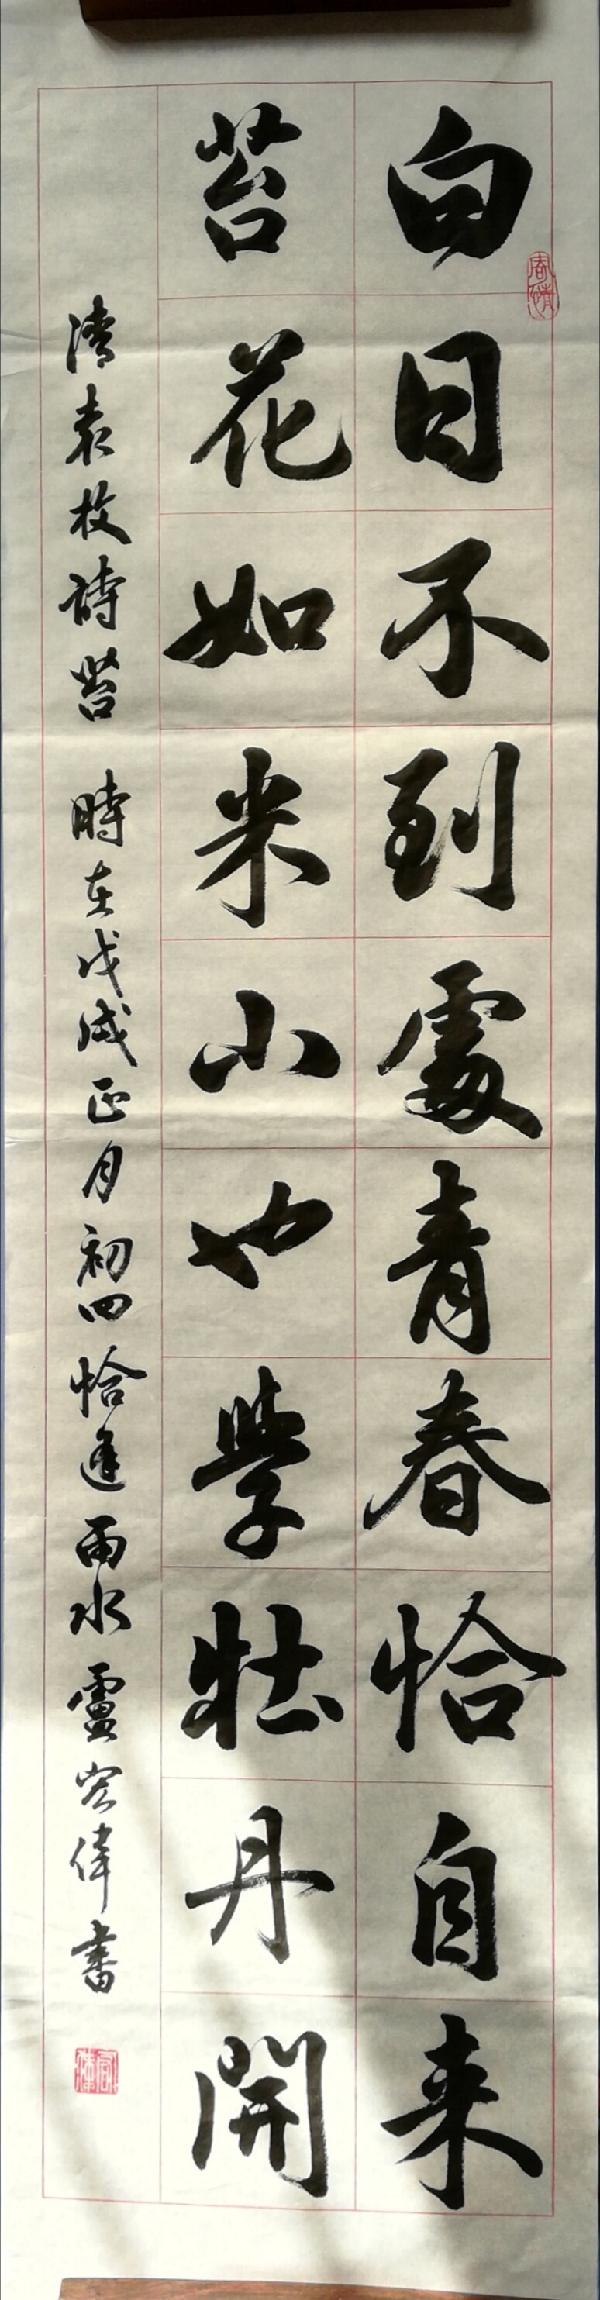 白日不到處青春恰自来
苔花如米小也學牡丹開
清袁枚詩苔 時在戊戌正月初四恰逢雨水盧宏偉書